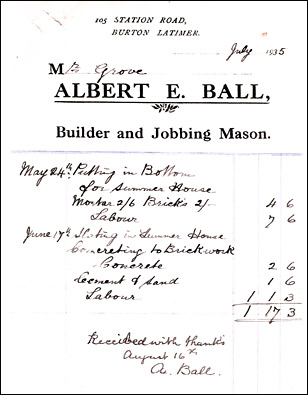 105 STATION ROAD,
BURTON LATIMER.
July 1935
Mr Grove
ALBERT E. BALL,
Builder and Jobbing Mason.
May 24th Putting in Bottom
for Summer House
Mortar 2/6 Bricks 2/- 4 6
Labour 7 6
June 17th Slating in Summer House
Concreting to Brickwork
Concrete 2 6
Cement & Sand 1 6
Labour 1 1 3
1 17 3
Received with thanks
August 16th
A. Ball.